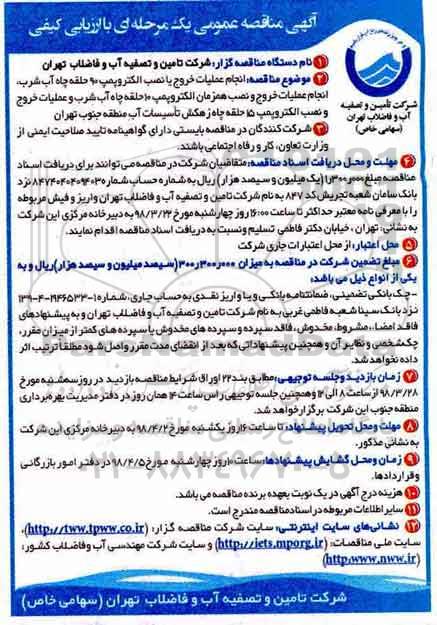 آگهی مناقصه عمومی یک مرحله ای با ارزیابی کیفی
شرکت تأمین و تصفیه
آب و فاضلاب تهران
(سهامی خاص)
۱ نام دستگاه مناقصه گزار: شرکت تامین و تصفیه آب و فاضلاب تهران
۲ موضوع مناقصه: انجام عملیات خروج یا نصب الکتروپمپ ۹۰ حلقه چاه آب شرب،
انجام عملیات خروج و نصب همزمان الکتروپمپ ۱۰ حلقه چاه آب شرب و عملیات خروج
و نصب الکتروپمپ ۱۵ حلقه چاه زهکش تأسیسات آب منطقه جنوب تهران
۳ شرکت کنندگان در مناقصه بایستی دارای گواهینامه تایید صلاحیت ایمنی از
وزارت تعاون، کار و رفاه اجتماعی باشند.
۴ مهلت و محل دریافت اسناد مناقصه: متقاضیان شرکت در مناقصه می توانند برای دریافت اسناد
مناقصه مبلغ ۱٫۳۰۰٫۰۰۰ (یک میلیون و سیصد هزار) ریال به شماره حساب شماره نزد
بانک سامان شعبه تجریش کد ۸۳۷ به نام شرکت تامین و تصفیه آب و فاضلاب تهران واریز و فیش مربوطه
را با معرفی نامه معتبر حداکثر تا ساعت ۱۶:۰۰ روز چهارشنبه مورخ ۹۸/۳/۲۲ به دبیرخانه مرکزی این شرکت
به نشانی: تهران، خیابان دکتر فاطمی تسلیم و نسبت به دریافت اسناد مناقصه اقدام نمایند.
۵ محل اعتبار: از محل اعتبارات جاری شرکت
۶ مبلغ تضمین شرکت در مناقصه به میزان ۳۰۰٫۳۰۰٫۰۰۰ (سیصد میلیون و سیصد هزار) ریال و به
یکی از انواع ذیل می باشد:
- چک بانکی تضمینی، ضمانتنامه بانکی و یا واریز نقدی به حساب جاری، شماره
نزد بانک سینا شعبه فاطمی غربی به نام شرکت تامین و تصفیه آب و فاضلاب تهران و به پیشنهادهای
فاقد امضاء، مشروط، مخدوش، فاقد سپرده و سپرده های مخدوش یا سپرده های کمتر از میزان مقرر،
چک شخصی و نظایر آن و همچنین پیشنهاداتی که بعد از انقضای مدت مقرر واصل شود مطلقاً ترتیب اثر
داده نخواهد شد.
۷ زمان بازدید و جلسه توجیهی: مطابق بند ۲۲ اوراق شرایط مناقصه بازدید در روز سه شنبه مورخ
۹۸/۳/۲۸ از ساعت ۸ الی ۱۲ و همچنین جلسه توجیهی راس ساعت ۱۴ همان روز در دفتر مدیریت بهره برداری
منطقه جنوب این شرکت برگزار خواهد شد.
۸ مهلت و محل تحویل پیشنهاد: تا ساعت ۱۶ روز یکشنبه مورخ ۹۸/۴/۲ به دبیرخانه مرکزی این شرکت
به نشانی مذکور.
۹ زمان و محل گشایش پیشنهادها: ساعت ۱۰ روز چهارشنبه مورخ ۹۸/۴/۵ در دفتر امور بازرگانی
و قراردادها.
۱۰ هزینه درج آگهی در یک نوبت بعهده برنده مناقصه می باشد.
۱۱ سایر اطلاعات مربوطه در اسناد مناقصه مندرج است.
۱۲ نشانی های سایت اینترنتی: سایت شرکت مناقصه گزار: (http://tww.tpww.co.ir)،
سایت ملی مناقصات: (http://iets.mporg.ir) و سایت شرکت مهندسی آب و فاضلاب کشور:
(http:www.nww.ir)
شرکت تامین و تصفیه آب و فاضلاب تهران (سهامی خاص)